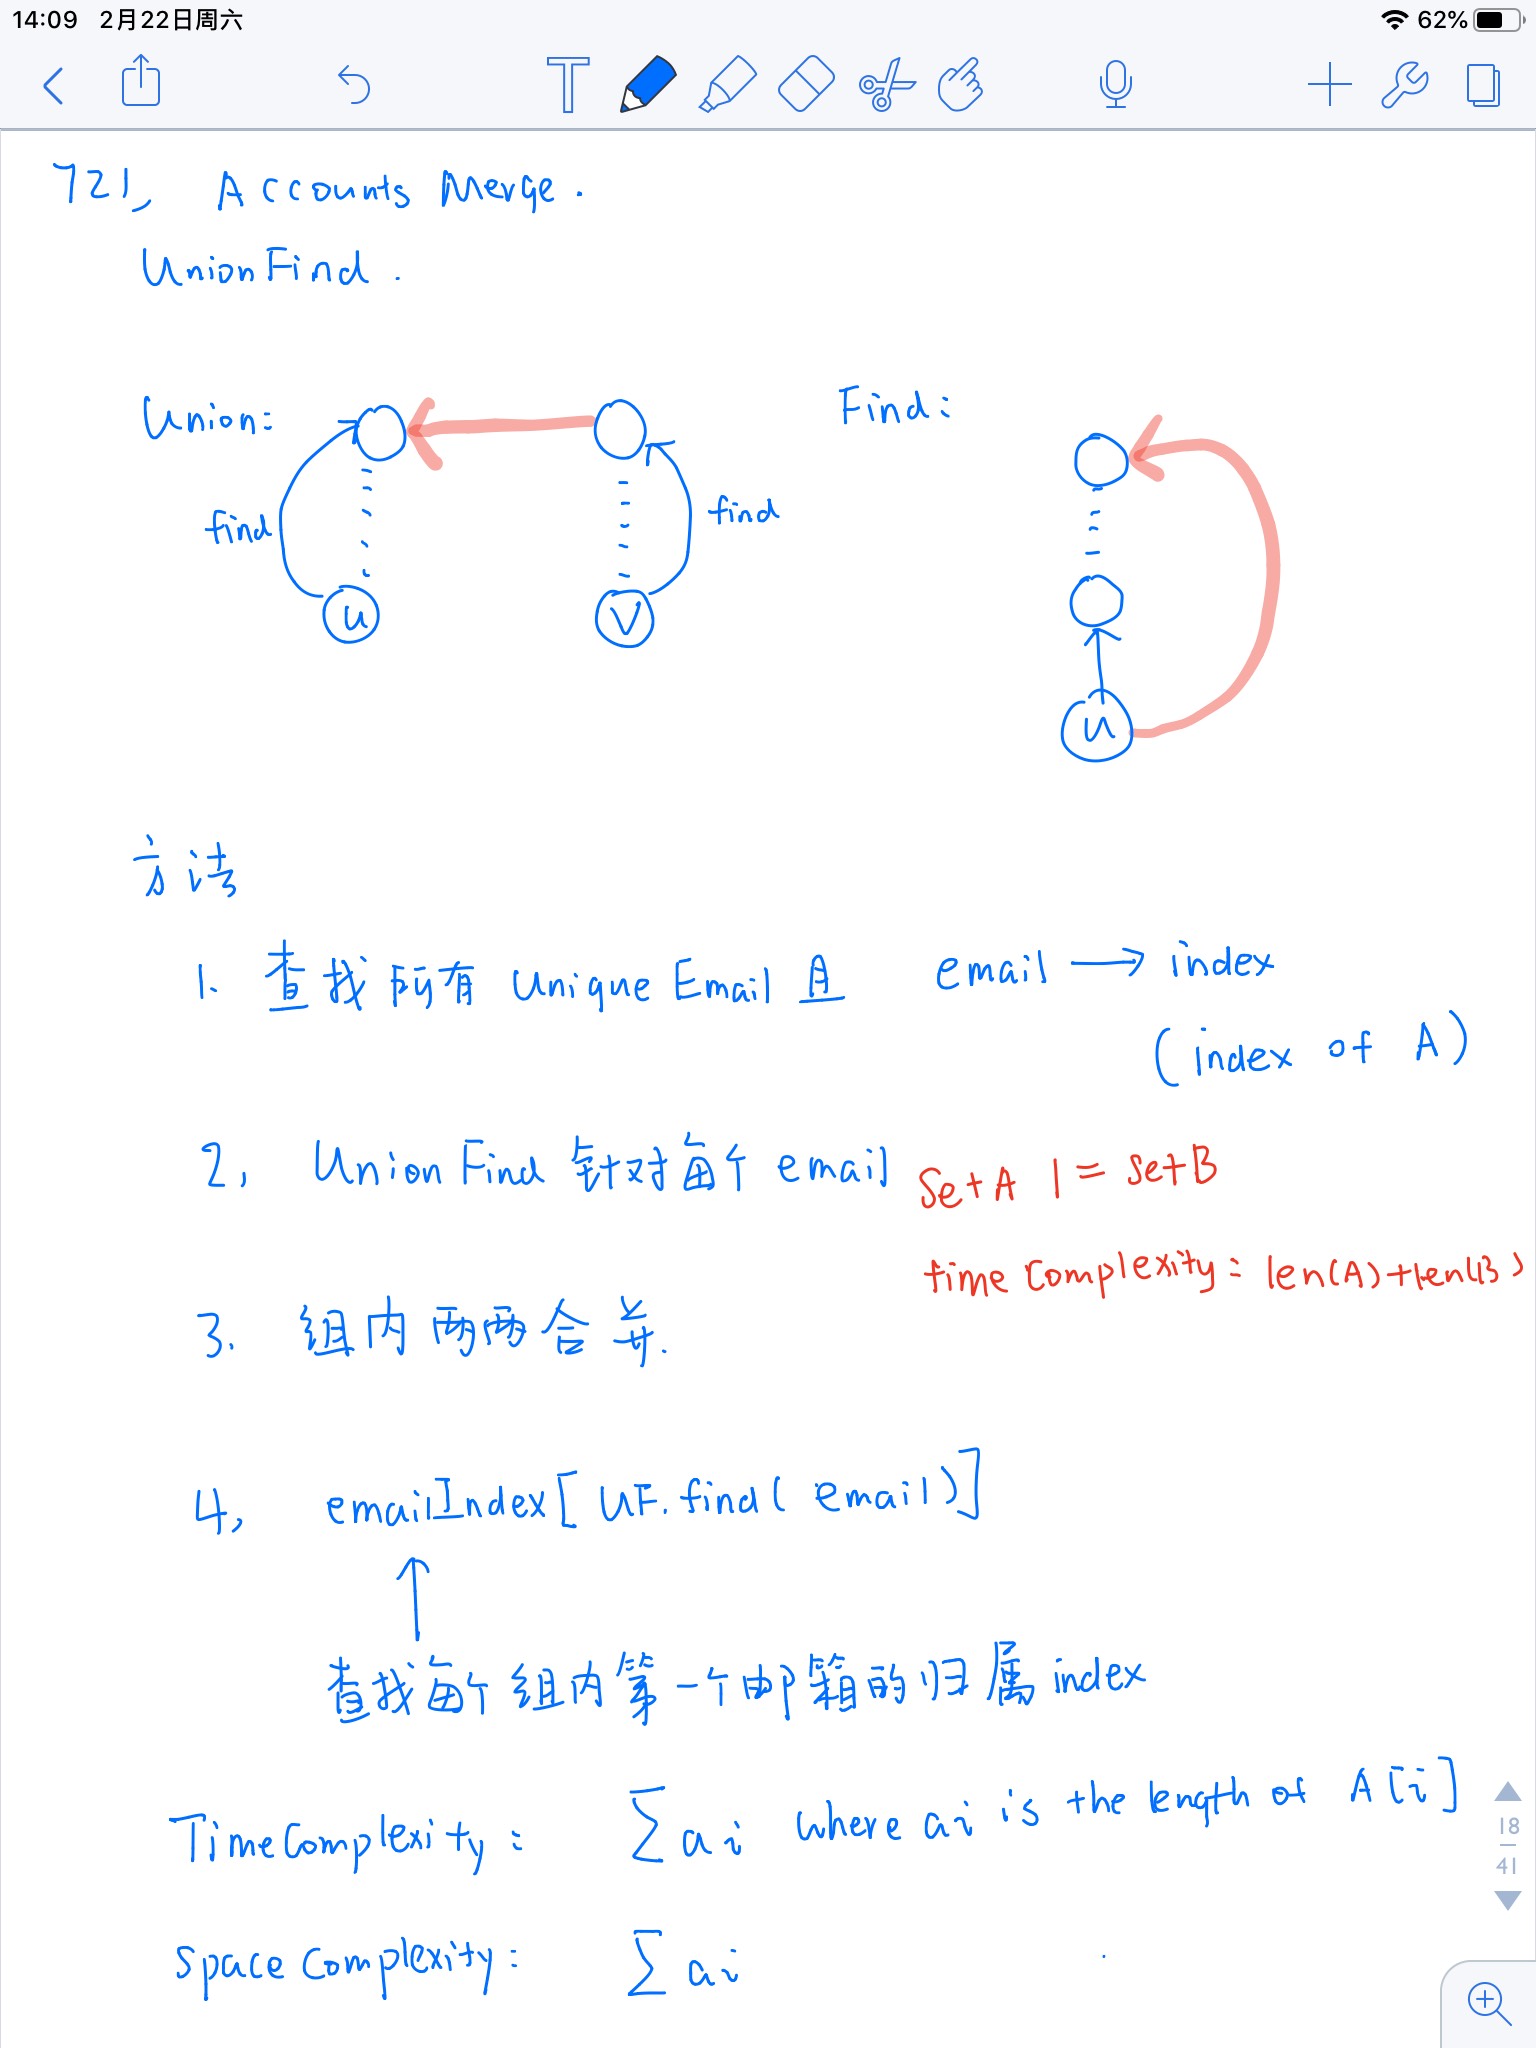 14:09 2月22日周六 62%
T
721, Accounts Merge.
UnionFind.
Union:
Find:
find
find
u
v
u
方法
1. 查找所有 Unique Email 且 email → index
(index of A)
2, Union Find 针对每个 email
SetA |= SetB
time Complexity: len(A)+len(B)
3. 组内两两合并.
4, emailIndex[UF.find(email)]
↑
查找每个组内第一个邮箱的归属 index
TimeComplexity: ∑ai where ai is the length of A[i]
Space Complexity: ∑ai
18
41